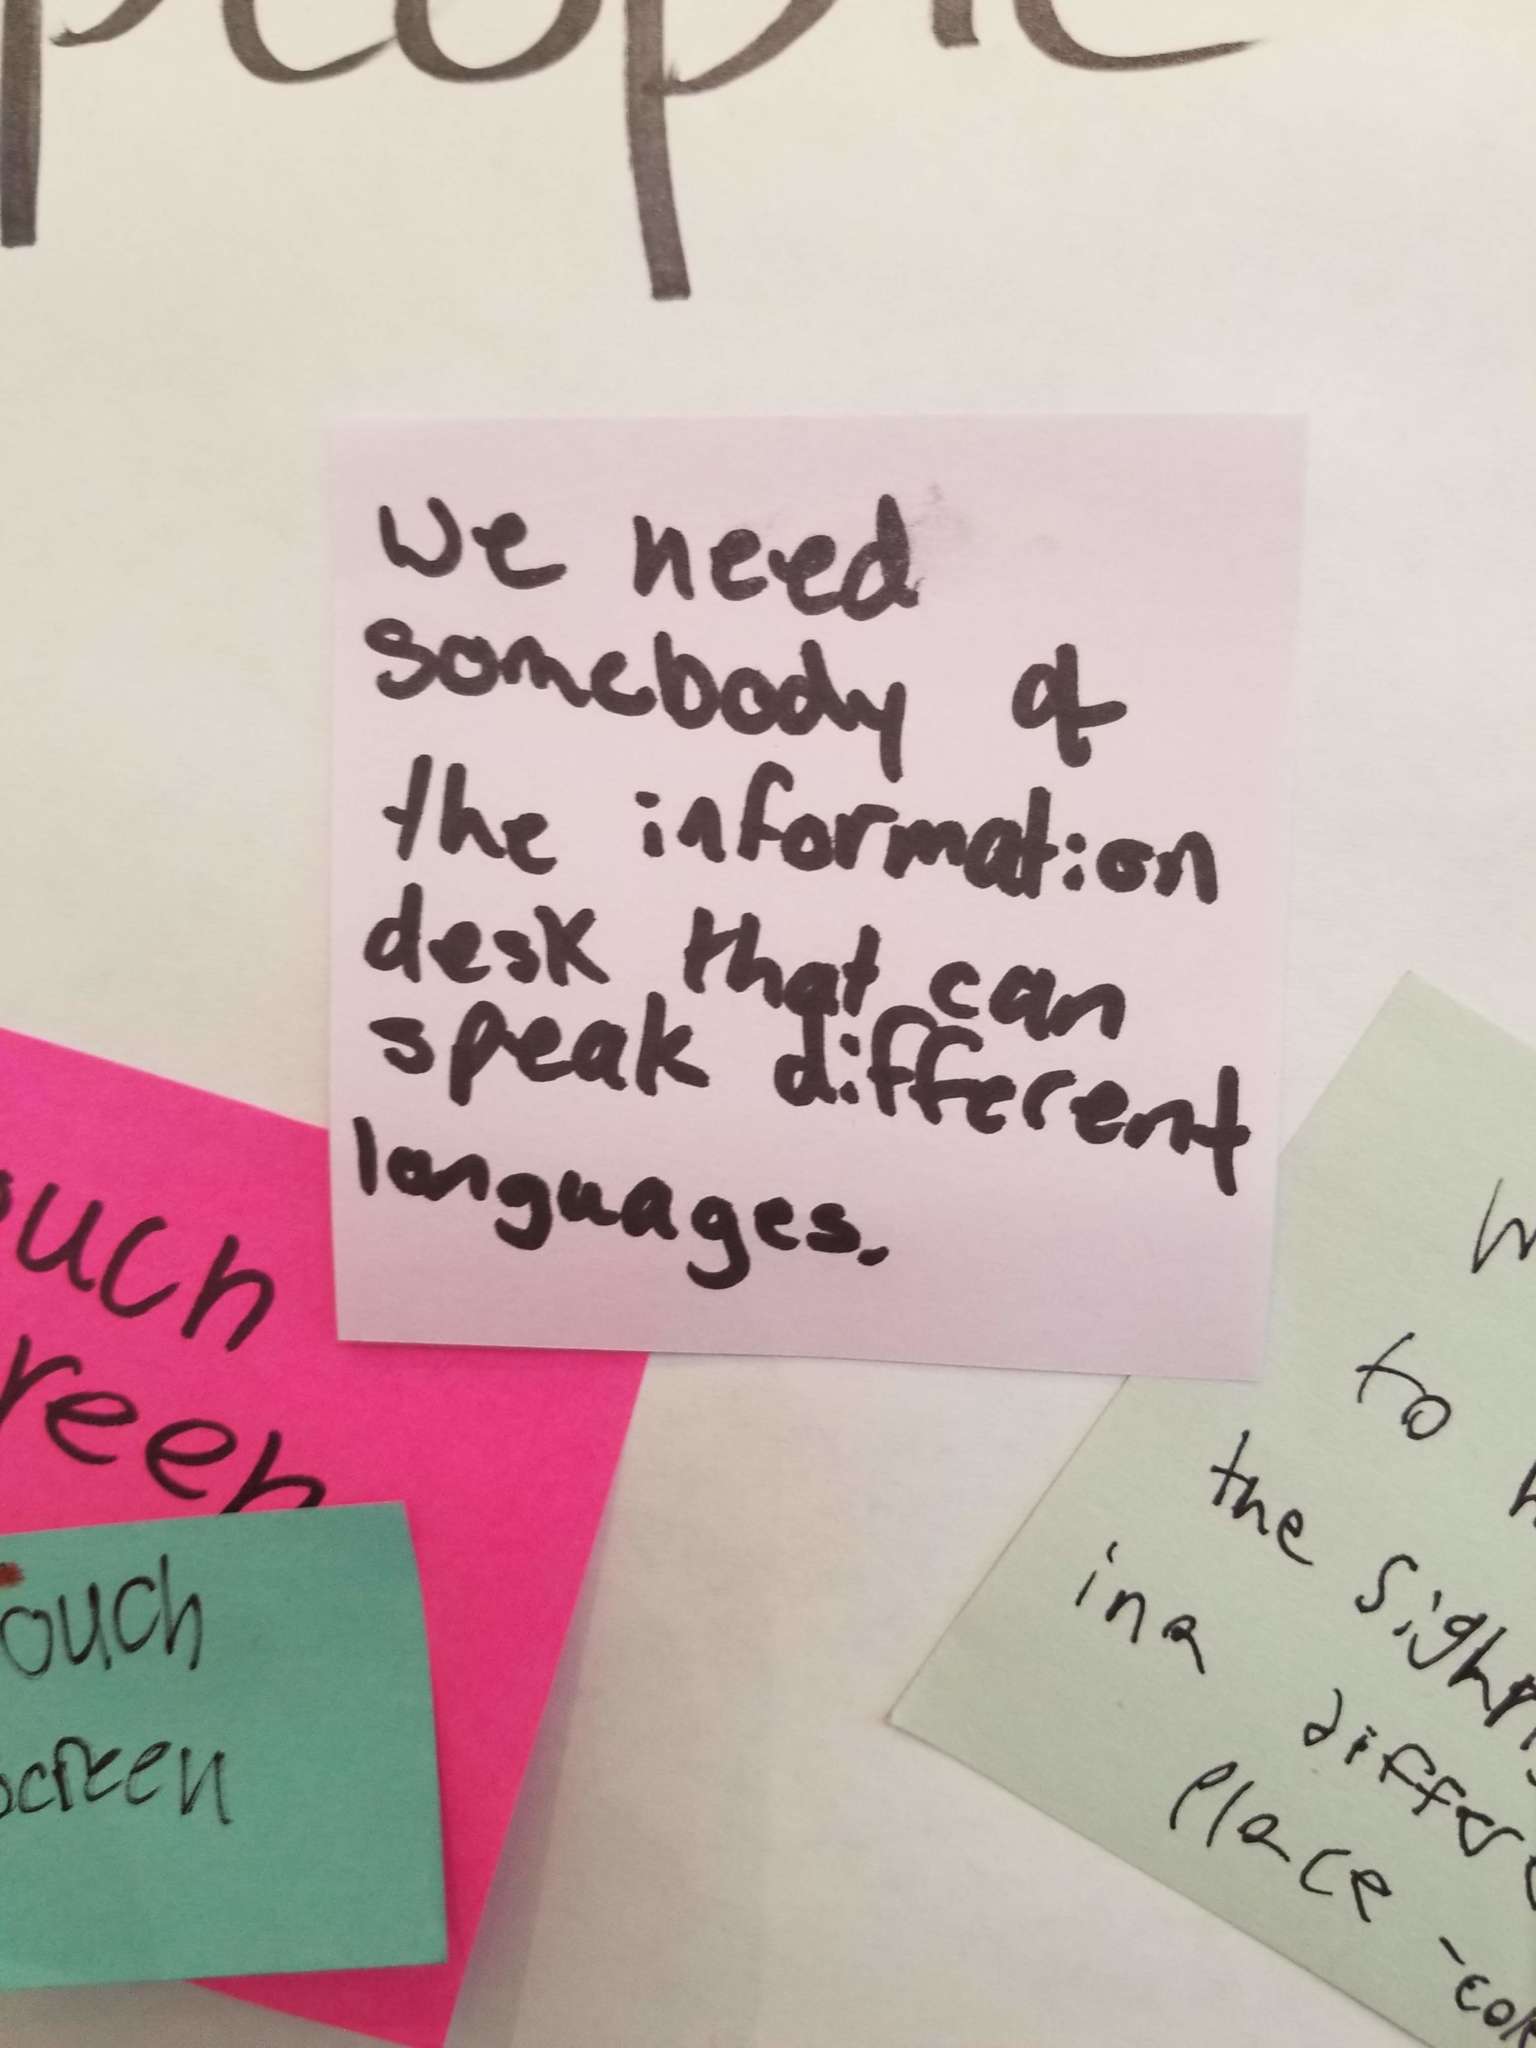 people
we need
somebody of
the information
desk that can
speak different
languages.
touch
screen
to
the
in a
place